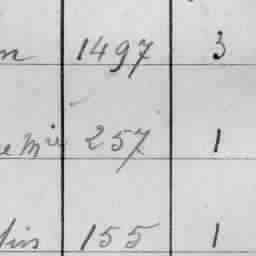 n 1497 3
e Mie 257 1
lin 155 1